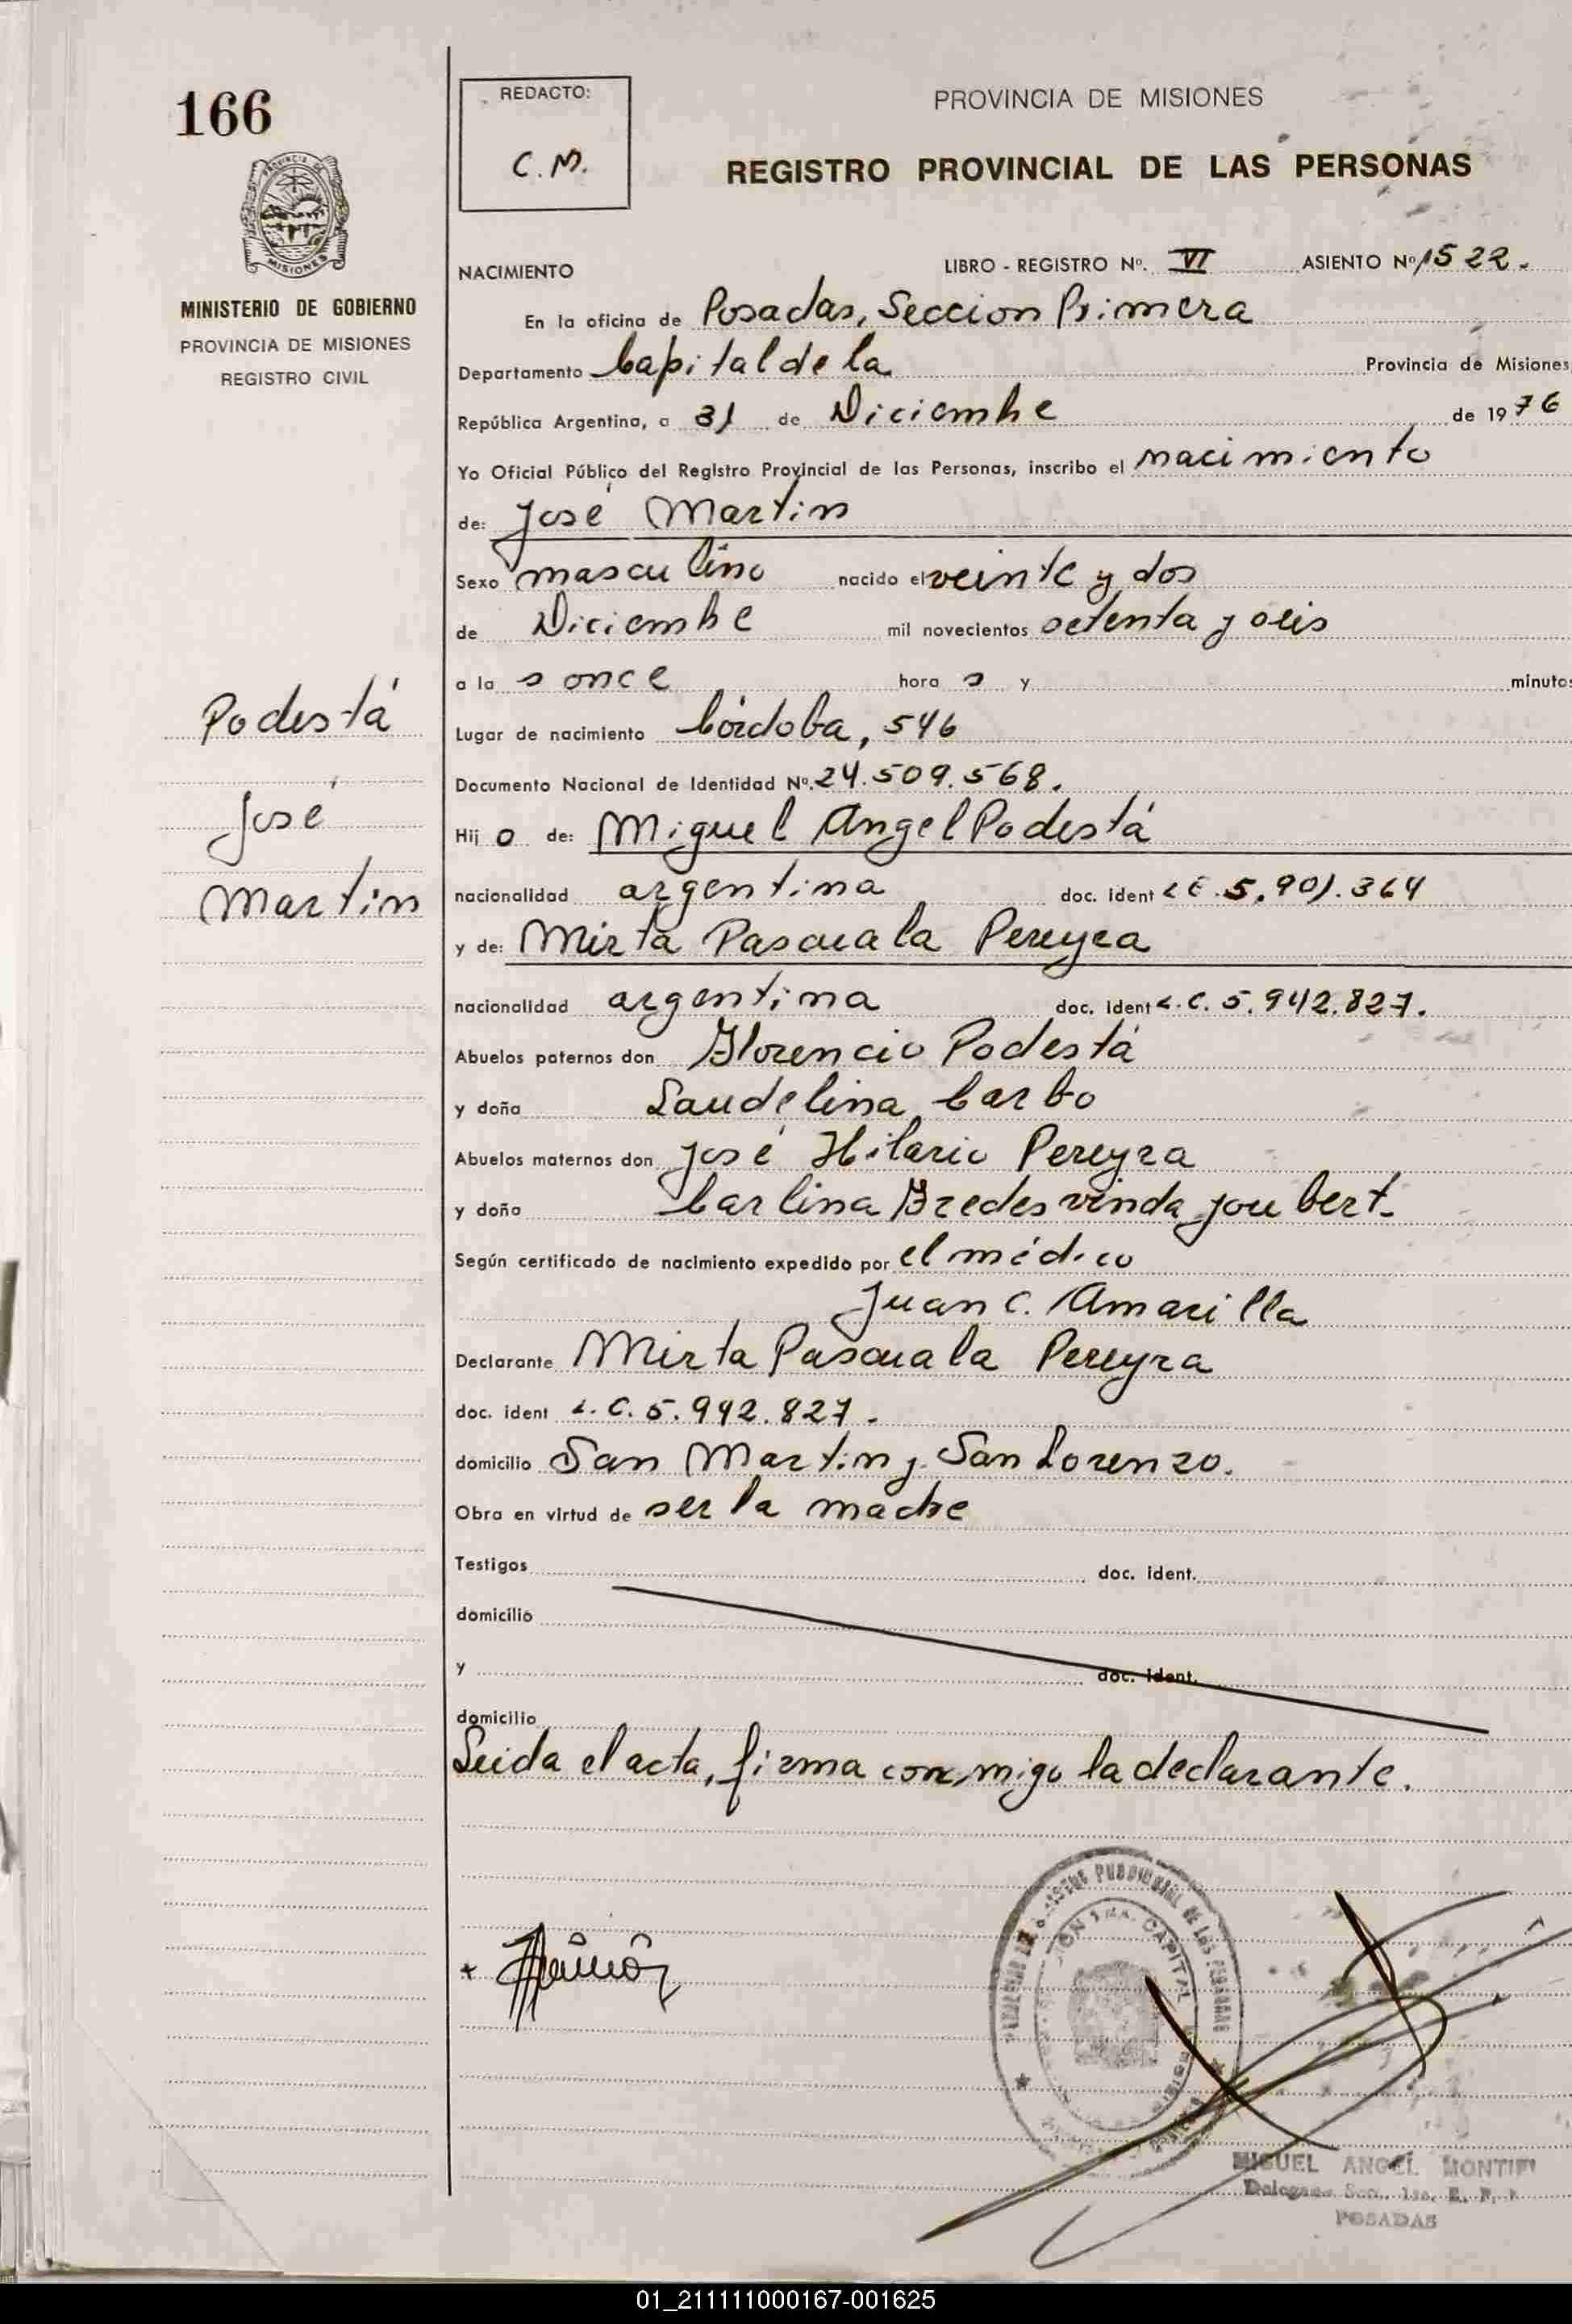 166
REDACTO:
C.M.
PROVINCIA DE MISIONES
REGISTRO PROVINCIAL DE LAS PERSONAS
MISIONES
MINISTERIO DE GOBIERNO
PROVINCIA DE MISIONES
REGISTRO CIVIL
NACIMIENTO
LIBRO - REGISTRO Nº. VI ASIENTO Nº 1522.
En la oficina de Posadas, Seccion Primera
Departamento Capital de la Provincia de Misiones
República Argentina, a 31 de Diciembre de 1976
Yo Oficial Público del Registro Provincial de las Personas, inscribo el nacimiento
de: José Martin
Sexo masculino nacido el veinte y dos
de Diciembre mil novecientos setenta y seis
a las once horas y minutos
Lugar de nacimiento Córdoba, 546
Documento Nacional de Identidad Nº. 24.509.568.
Hijo de: Miguel Angel Podestá
nacionalidad argentina doc. ident L.E. 5.901.364
y de: Mirta Pascuala Pereyra
nacionalidad argentina doc. ident L.C. 5.942.827.
Abuelos paternos don Florencio Podestá
y doña Laudelina Carbo
Abuelos maternos don José Hilario Pereyra
y doña Carlina Fredesvinda Joubert.
Según certificado de nacimiento expedido por el médico
Juan C. Amarilla
Declarante Mirta Pascuala Pereyra
doc. ident L.C. 5.942.827.
domicilio San Martin y San Lorenzo.
Obra en virtud de ser la madre
Testigos doc. ident.
domicilio
y doc. ident.
domicilio
Leida el acta, firma conmigo la declarante.
Podestá
José
Martin
CAPITAL
MIGUEL ANGEL
POSADAS
01_211111000167-001625